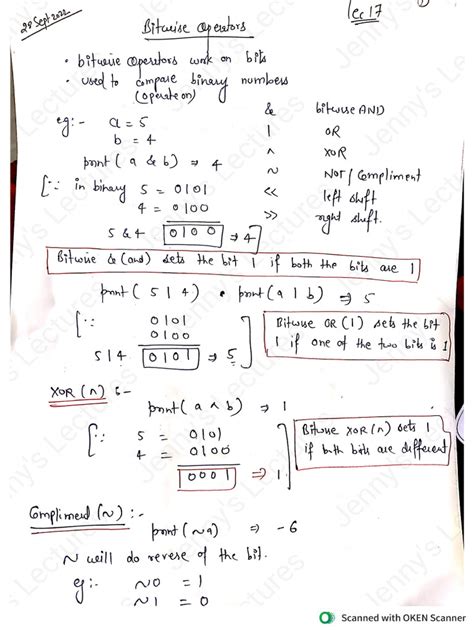 28 Sept 2022
Lec 17
①
Bitwise Operators
• bitwise operators work on bits
• used to compare binary numbers
(operate on)
eg:- a = 5
b = 4
print ( a & b) ⇒ 4
[∵ in binary 5 = 0101
4 = 0100
5 & 4 0100 ⇒ 4]
& bitwise AND
| OR
^ XOR
~ NOT/Compliment
<< left shift
>> right shift.
Bitwise & (and) sets the bit 1 if both the bits are 1
print ( 5 | 4) • print ( a | b) ⇒ 5
[∵ 0101
0100
5 | 4 0101 ⇒ 5]
Bitwise OR (|) sets the bit
1 if one of the two bits is 1
XOR (^) :-
print ( a ^ b) ⇒ 1
[∵ 5 = 0101
4 = 0100
0001 ⇒ 1]
Bitwise XOR (^) sets 1
if both bits are different
Compliment (~) :-
print (~a) ⇒ -6
~ will do reverse of the bit.
eg:- ~0 = 1
~1 = 0
Jenny's Lectures
Scanned with OKEN Scanner